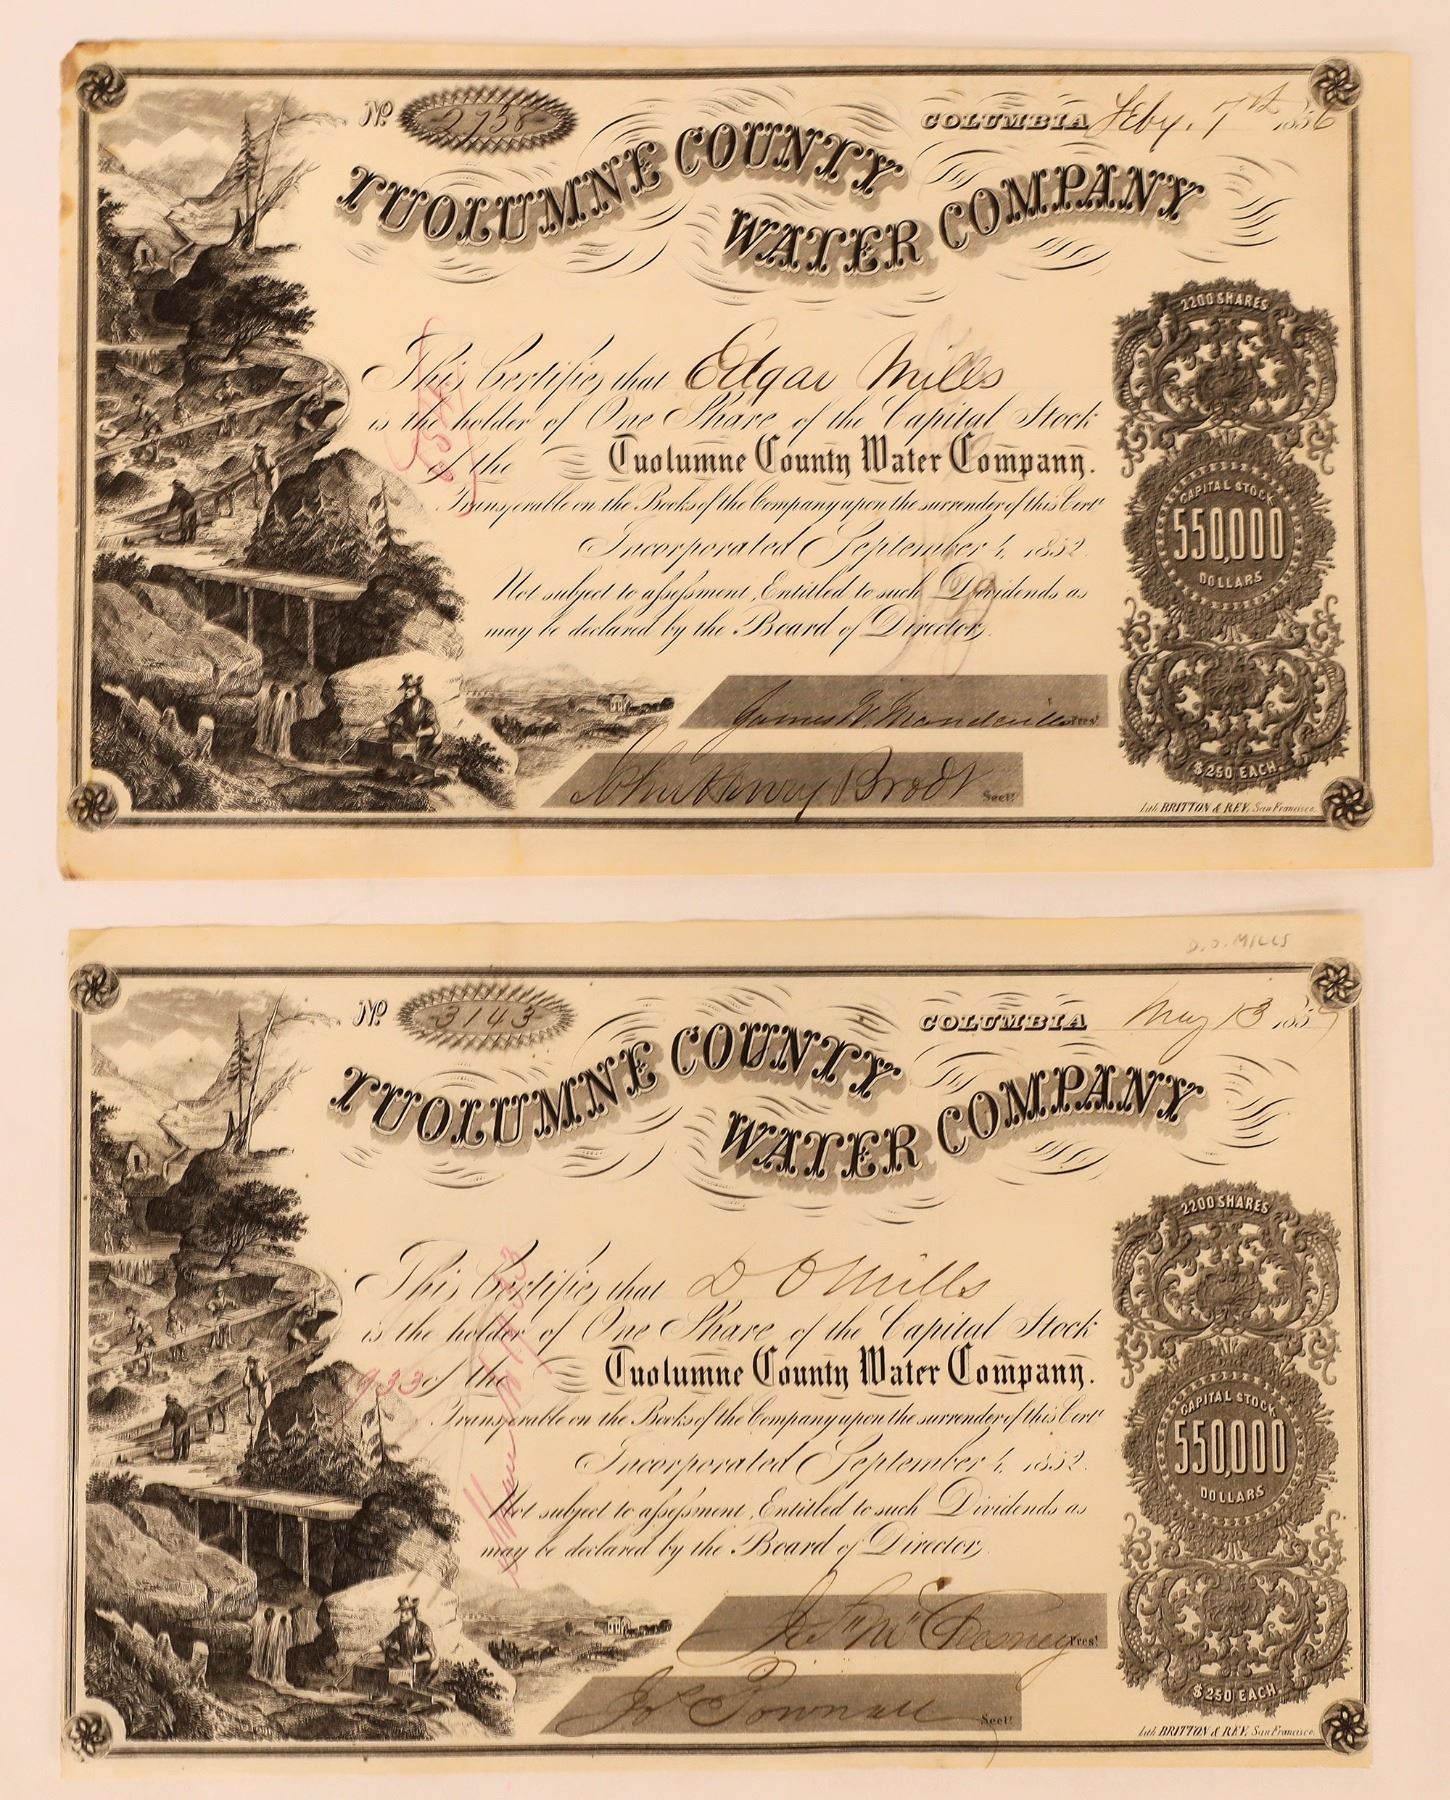 No. 2958 COLUMBIA Feby. 7th 1856
TUOLUMNE COUNTY
WATER COMPANY
2200 SHARES
This Certifies that Edgar Mills
is the holder of One Share of the Capital Stock
of the Tuolumne County Water Company.
Transferable on the Books of the Company upon the surrender of this Certt
CAPITAL STOCK
550,000
DOLLARS
Incorporated September 4, 1852.
Not subject to assessment, Entitled to such Dividends as
may be declared by the Board of Directors.
James W. Mandeville Prest
John Henry Brodt Secty
$250 EACH
Lith. BRITTON & REY, San Francisco.
D.O. MILLS
No. 3143 COLUMBIA May 13 185
TUOLUMNE COUNTY
WATER COMPANY
2200 SHARES
This Certifies that D O Mills
is the holder of One Share of the Capital Stock
933 of the Tuolumne County Water Company.
Transferable on the Books of the Company upon the surrender of this Certt
CAPITAL STOCK
550,000
DOLLARS
Incorporated September 4, 1852.
Not subject to assessment, Entitled to such Dividends as
may be declared by the Board of Directors.
Chesney Prest
Jos Pownall Secty
$250 EACH
Lith. BRITTON & REY, San Francisco.